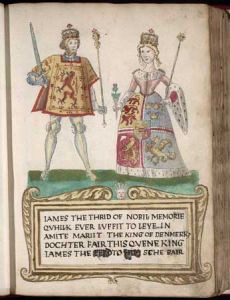 IAMES THE THRID OF NOBIL MEMORIE
QVHILK EVER IVFFIT TO LEYE IN
AMITE MARIIT THE KING OF DENMERK
DOCHTER FAIR THIS QVENE KING
IAMES THE TO SCHE BAIR